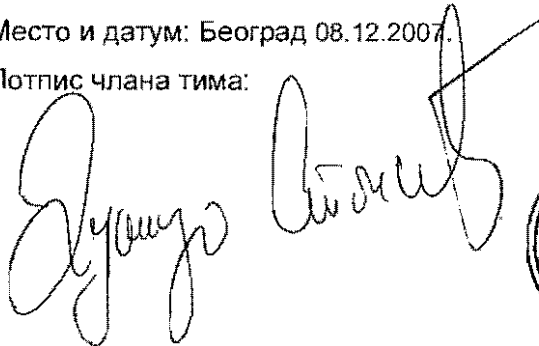 Место и датум: Београд 08.12.2007.
Потпис члана тима: